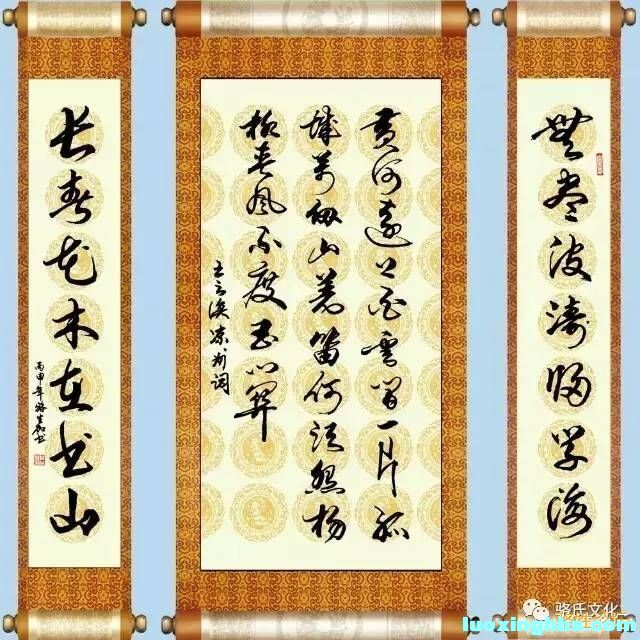 無尽波涛归学海
黄河远上白云间一片孤
城万仞山羌笛何须怨杨
柳春风不度玉门关
王之涣凉州词
长春花木在书山
丙申年骆书
骆氏文化